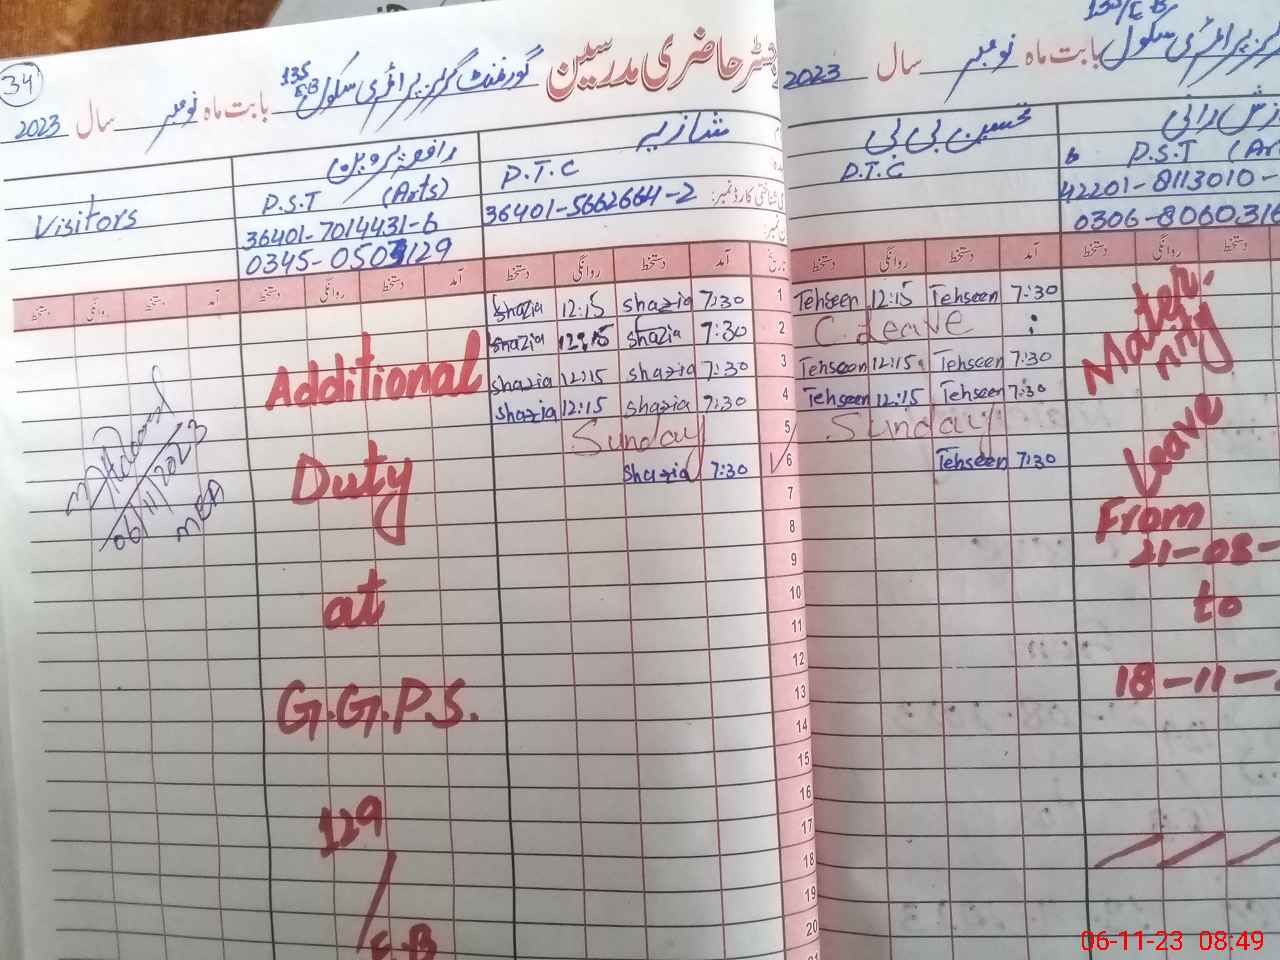 34
رجسٹر حاضری مدرسین گورنمنٹ گرلز پرائمری سکول 135/E.B بابت ماہ نومبر سال 2023
شازیہ
P.T.C
شناختی کارڈ نمبر: 36401-5662664-2
پروین
P.S.T (Arts)
36401-7014431-6
Visitors
آمد دستخط روانگی دستخط آمد دستخط روانگی دستخط آمد دستخط روانگی دستخط
1 7:30 Shazia 12:15 Shazia
2 7:30 Shazia 12:15 Shazia
3 7:30 Shazia 12:15 Shazia
4 7:30 Shazia 12:15 Shazia
5 Sunday
6 7:30 Shazia
7
8
9
10
11
12
13
14
15
16
17
18
19
20
Additional
Duty
at
G.G.P.S.
129
/
E.B
06/11/2023
135/E.B
پرائمری سکول بابت ماہ نومبر سال 2023
P.S.T (Ar
42201-8113010-
0306-8060316
تحسین بی بی
P.T.C
آمد دستخط روانگی دستخط
7:30 Tehseen 12:15 Tehseen
C.Leave
7:30 Tehseen 12:15 Tehseen
7:30 Tehseen 12:15 Tehseen
Sunday
7:30 Tehseen
Mater-
nity
Leave
From
21-08-
to
18-11-
06-11-23 08:49